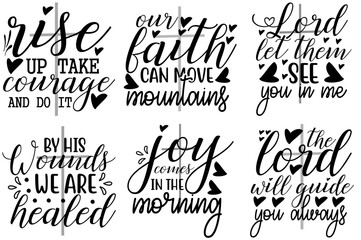 rise
UP TAKE
courage
AND DO IT
our
faith
CAN MOVE
mountains
Lord
let them
SEE
you in me
BY HIS
Wounds
WE ARE
healed
joy
comes
IN THE
morning
the
lord
will guide
you always